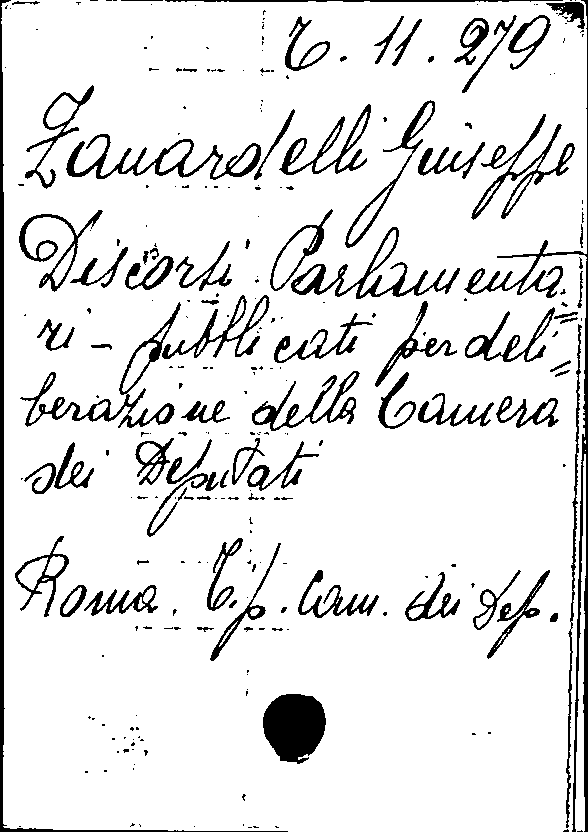 T. 11. 279
Zanardelli Giuseppe
Discorsi Parlamenta=
ri - pubblicati per deli=
berazione della Camera
dei Deputati
Roma. Tip. Cam. dei Dep.